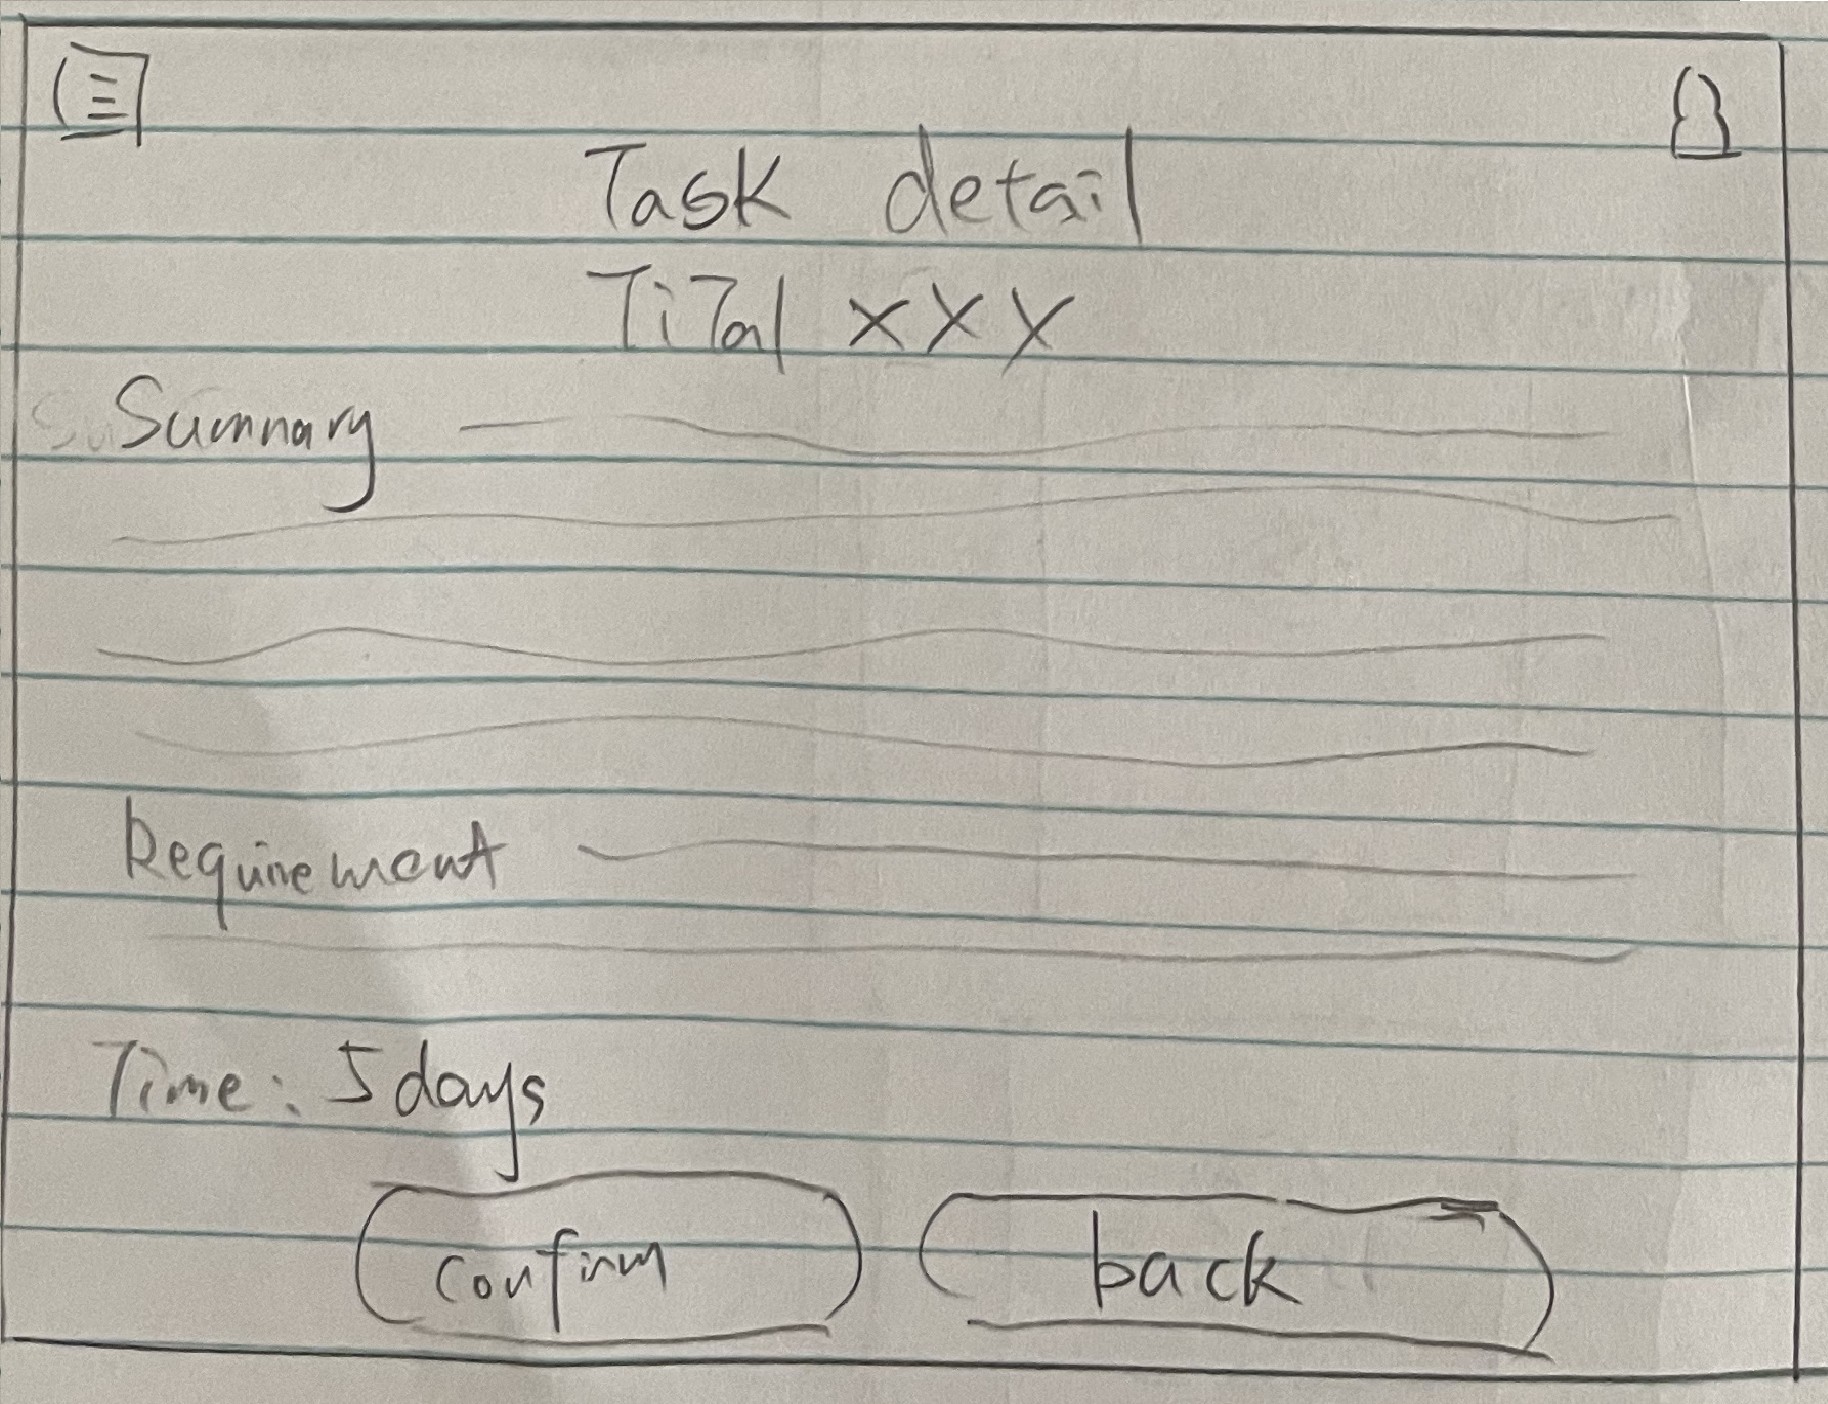 Task detail
TiTal XXX
Summary
Requirement
Time: 5 days
confirm
back